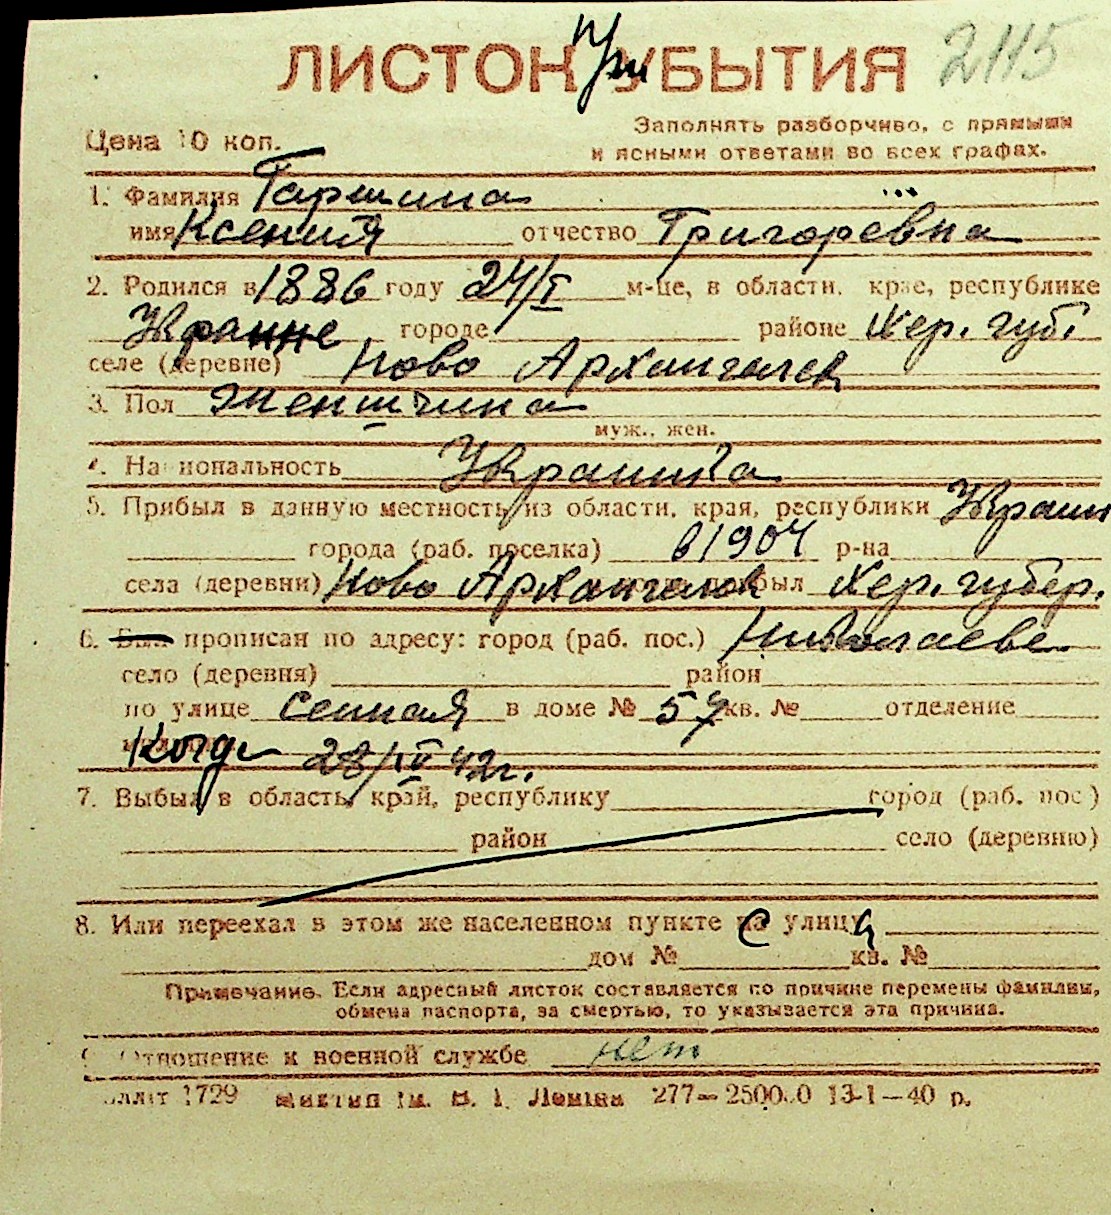 ЛИСТОК При УБЫТИЯ 2115
Цена 10 коп.
Заполнять разборчиво, с прямыми
и ясными ответами во всех графах.
1. Фамилия Гаршина
имя Ксения отчество Григорёвна
2. Родился в 1886 году 24/I м-це, в области, крае, республике
Украине городе районе Хер. губ.
селе (деревне) Ново Архангелск
3. Пол Женшчина
муж., жен.
4. Национальность Украинка
5. Прибыл в данную местность из области, края, республики Украин
города (раб. поселка) в 1904 р-на
села (деревни) Ново Архангелск прибыл Хер. губер.
6. Был прописан по адресу: город (раб. пос.) Николаеве
село (деревня) район
по улице Сенная в доме № 57 кв. № отделение
Когда 28/IV 42г.
7. Выбыл в область, край, республику город (раб. пос.)
район село (деревню)
8. Или переехал в этом же населенном пункте с улицы
дом № кв. №
Примечание. Если адресный листок составляется по причине перемены фамилии,
обмена паспорта, за смертью, то указывается эта причина.
9. Отношение к военной службе нет
1729 ім. В. І. Леніна 277—250000 13-I—40 р.